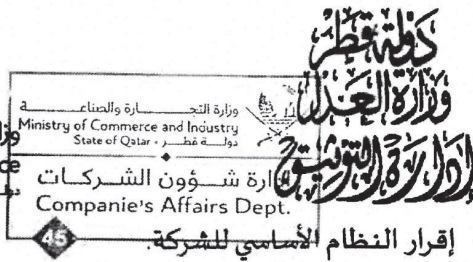 دولة قطر
وزارة العدل
إدارة التوثيق
وزارة التجـــارة والصناعـــة
Ministry of Commerce and Industry
State of Qatar - دولـــة قطـــر
إدارة شـــؤون الشـــركـــات
Companie's Affairs Dept.
45
إقرار النظام الأساسي للشركة: